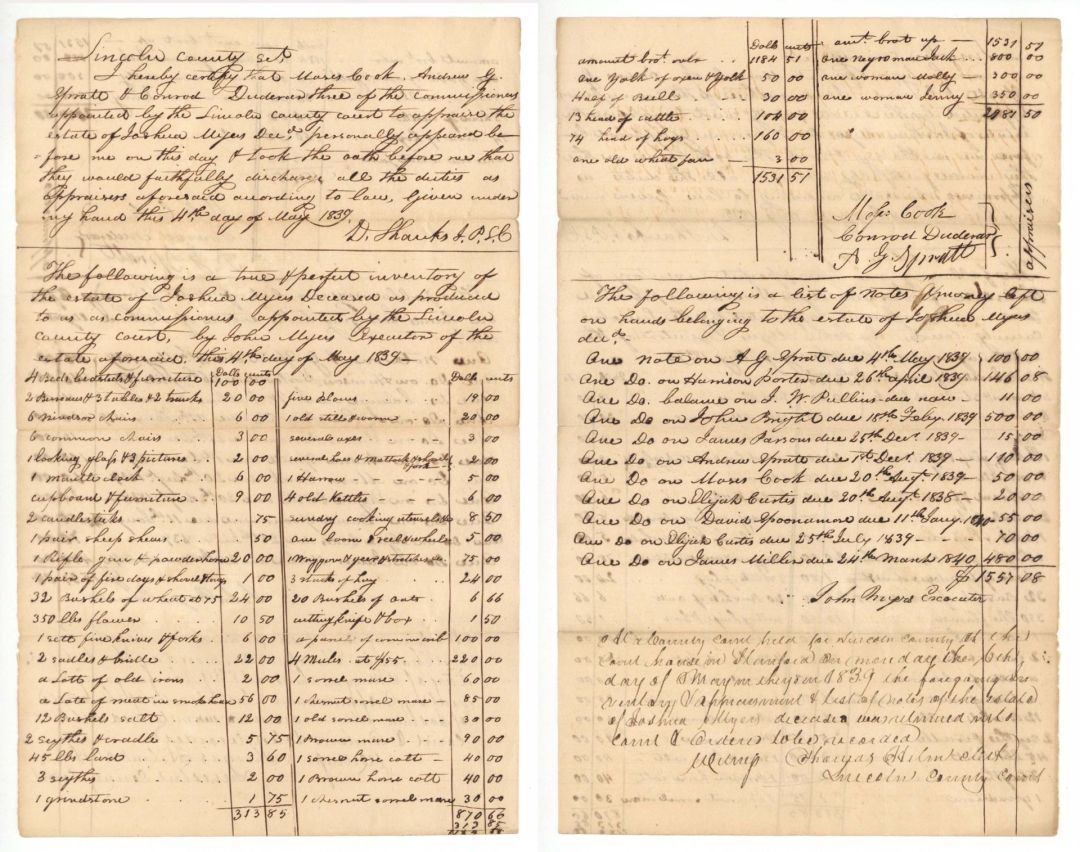 Lincoln County Sct
I hereby certify that Moses Cook, Andrew G.
Spratt & Conrod Duderar three of the commissioners
appointed by the Lincoln county court to appraise the
estate of Joshua Myers Decd personally appeared be-
-fore me on this day & took the oath before me that
they would faithfully discharge all the duties as
appraisers aforesaid according to law, Given under
my hand this 4th day of May 1839.
D. Shanks J. P. L. C
The following is a true & perfect inventory of
the estate of Joshua Myers Deceased as produced
to us as commissioners appointed by the Lincoln
county court, by John Myers Executor of the
estate aforesaid, this 4th day of May 1839-
Dolls cents
4 Beds bedsteads & furniture 100 00
2 Bureaus & 3 tables & 2 trunks 20 00
6 Windsor chairs 6 00
6 common chairs 3 00
1 looking glass & 3 pictures 2 00
1 mantle clock 6 00
cupboard & furniture 9 00
2 candlesticks 75
1 pair sheep shears 50
1 Rifle gun & powderhorn 20 00
1 pair of fire dogs & shovel & tongs 1 00
32 Bushels of wheat at 75 24 00
350 lbs flower 10 50
1 sett fine knives & forks 6 00
2 sadles & bridle 22 00
a Lott of old irons 2 00
a Lott of meat in smoke house 56 00
12 Bushels salt 12 00
2 scythes & cradle 5 75
45 lbs lard 3 60
3 scythes 2 00
1 grindstone 1 75
313 85
Dolls cents
five plows 19 00
1 old still & worm 20 00
several axes 3 00
several hoes & mattock & fork 2 00
1 Harrow 5 00
4 old kettles 6 00
sundry cooking utensils 8 50
one loom & reel & wheels 5 00
1 Waggon & gear & stretchers 75 00
3 stacks of hay 24 00
20 Bushels of oats 6 66
cutting knife & box 1 50
a parcel of corn in crib 100 00
4 Mules at $55 220 00
1 sorrel mare 60 00
1 chesnut sorrel mare 85 00
1 old sorrel mare 30 00
1 Brown mare 90 00
1 sorrel horse colt 40 00
1 Brown horse colt 40 00
1 chesnut sorrel mare 30 00
870 66
313 85
Dolls cents
amount brot. over 1184 51
one Yolk of oxen & Yolk 50 00
Half of Bull 30 00
13 head of cattle 104 00
74 head of hogs 160 00
one old wheat fan 3 00
1531 51
amt. brot up 1531 51
one negro man Jack 800 00
one woman Molly 300 00
one woman Jenny 350 00
2981 50
Moses Cook
Conrod Duderar
A. G. Spratt
appraisers
The following is a list of notes & money left
on hands belonging to the estate of Joshua Myers
decd.
One note on A G Spratt due 4th May 1839 100 00
One Do. on Harrison Porter due 26th april 1839 146 08
One Do. balance on J. W. Pullins due now 11 00
One Do on John Bright due 18th Feby. 1839 500 00
One Do on James Parsons due 25th Decr. 1839 15 00
One Do on Andrew Spratt due 1st Decr. 1839 110 00
One Do on Moses Cook due 20th Augt. 1839 50 00
One Do on Elijah Curtis due 20th Augt. 1838 20 00
One Do on David Spoonamore due 11th Jany. 1840 55 00
One Do on Elijah Curtis due 25th July 1839 70 00
One Do on James Miller due 24th March 1840 480 00
$1557 08
John Myers Executer
At a County Court held for Lincoln County at the
Court house in Stanford on monday the 6th
day of May in the year 1839 the foregoing in-
ventory & appraisment & list of notes of the estate
of Joshua Myers deceased was returned into
Court & Ordered to be recorded
Thomas Helm clerk
Lincoln County Court